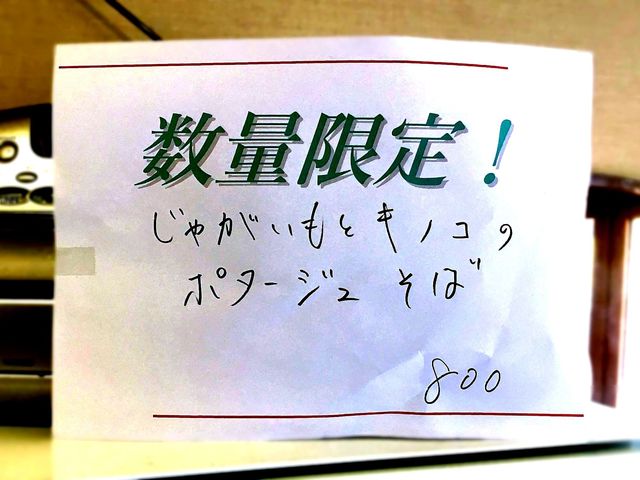 数量限定！
じゃがいもとキノコの
ポタージュ そば
800